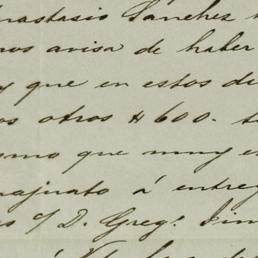 nastasio Sanchez
nos avisa de haber
y que en estos de
os otros $600.
smo que muy e
majisto á entreg
s/ D. Greg.º Sim